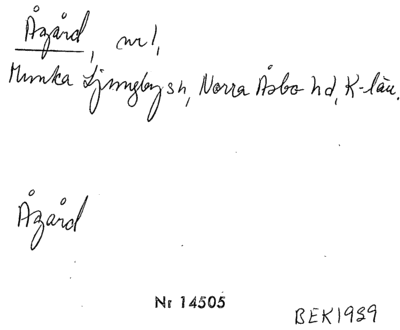 Åzård, nr 1,
Munka Ljungby sn, Norra Åsbo hd, K-län.
Åzård
Nr 14505
BEK 1939